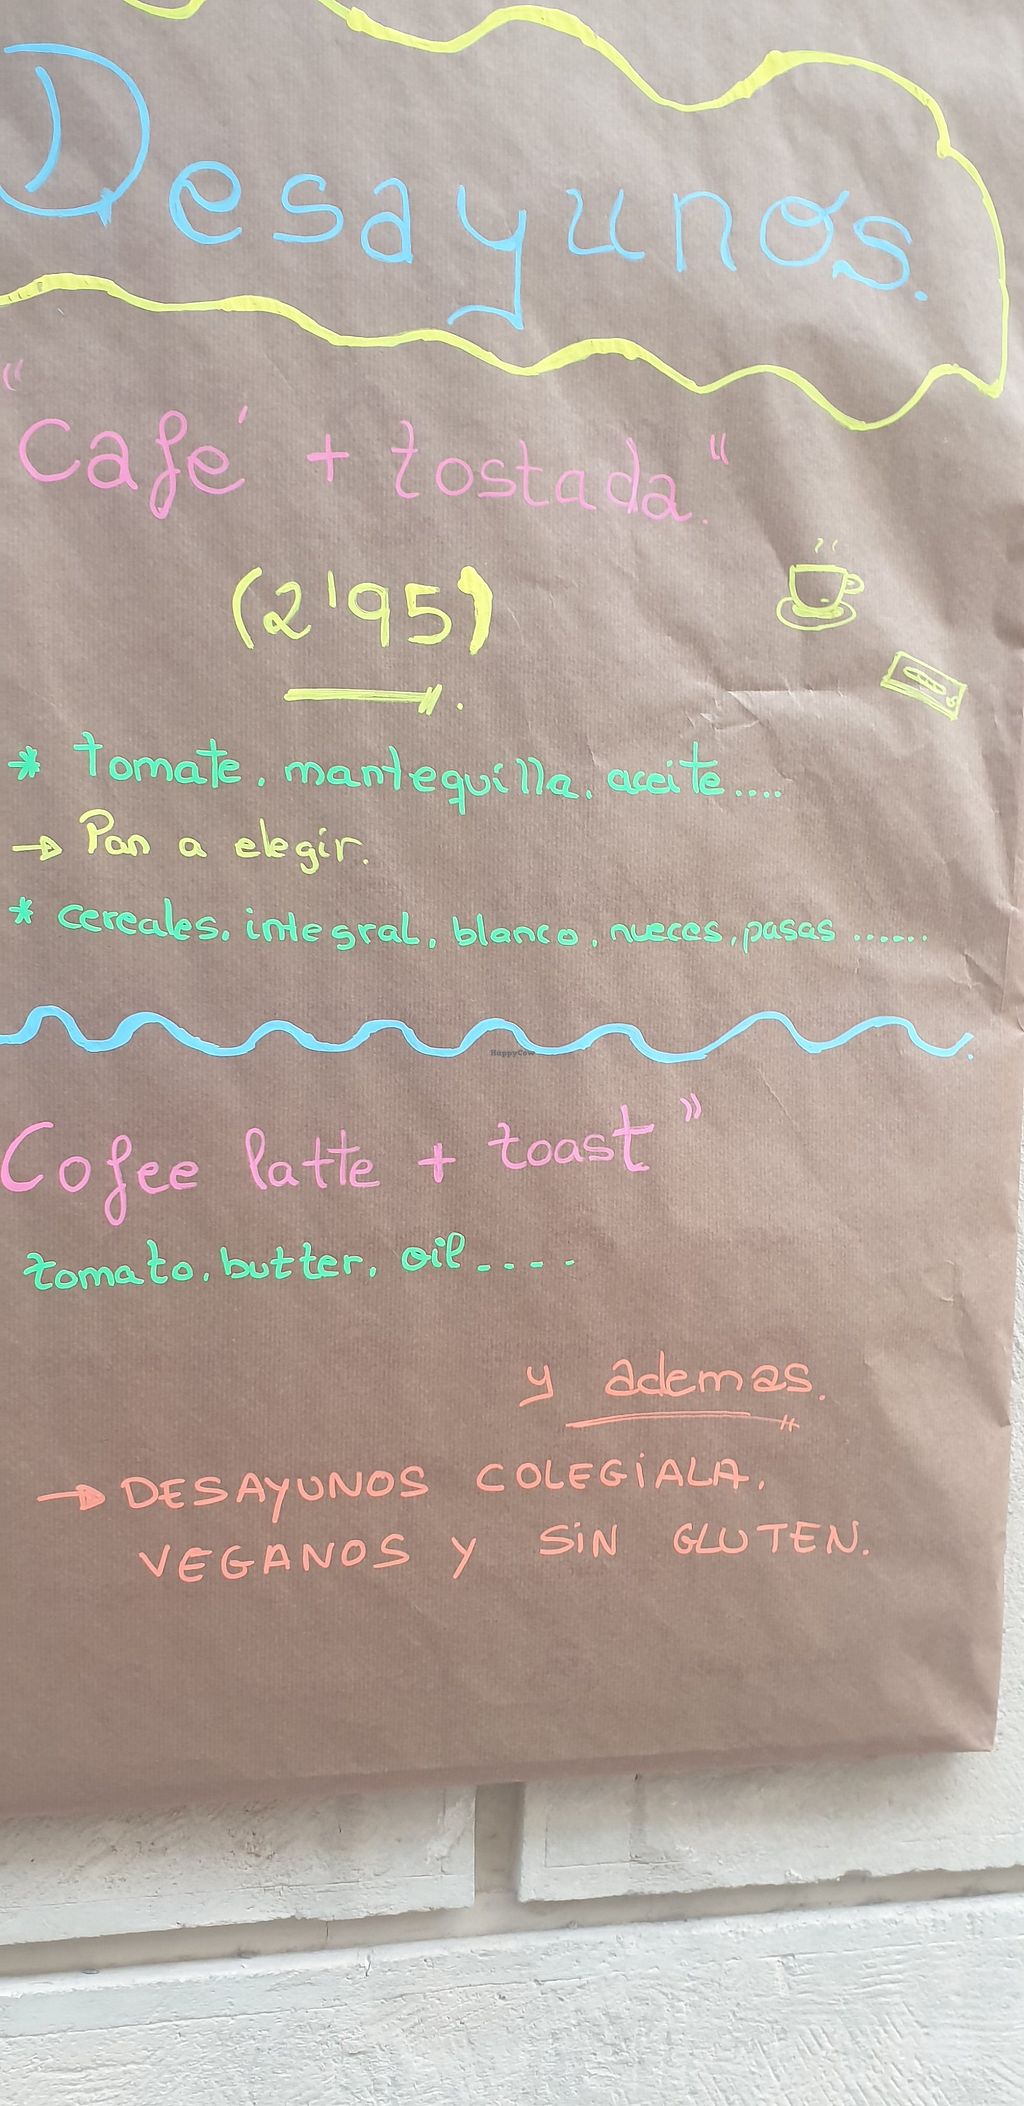 Desayunos.
"Café + tostada."
(2'95)
* tomate, mantequilla, aceite....
→ Pan a elegir.
* cereales, integral, blanco, nueces, pasas ......
HappyCow
Cofee latte + toast"
tomato, butter, oil....
y ademas.
→ DESAYUNOS COLEGiALA.
VEGANOS y SiN GLUTEN.